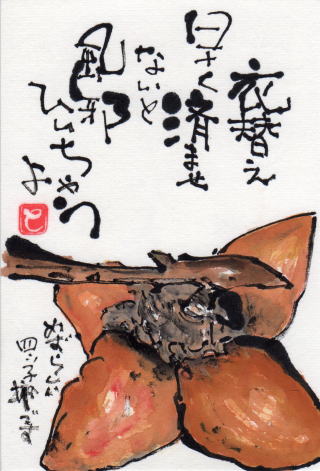 衣替え
早く済ませ
ないと
風邪
ひいちゃう
よ
めずらしい
四ツ子柿です